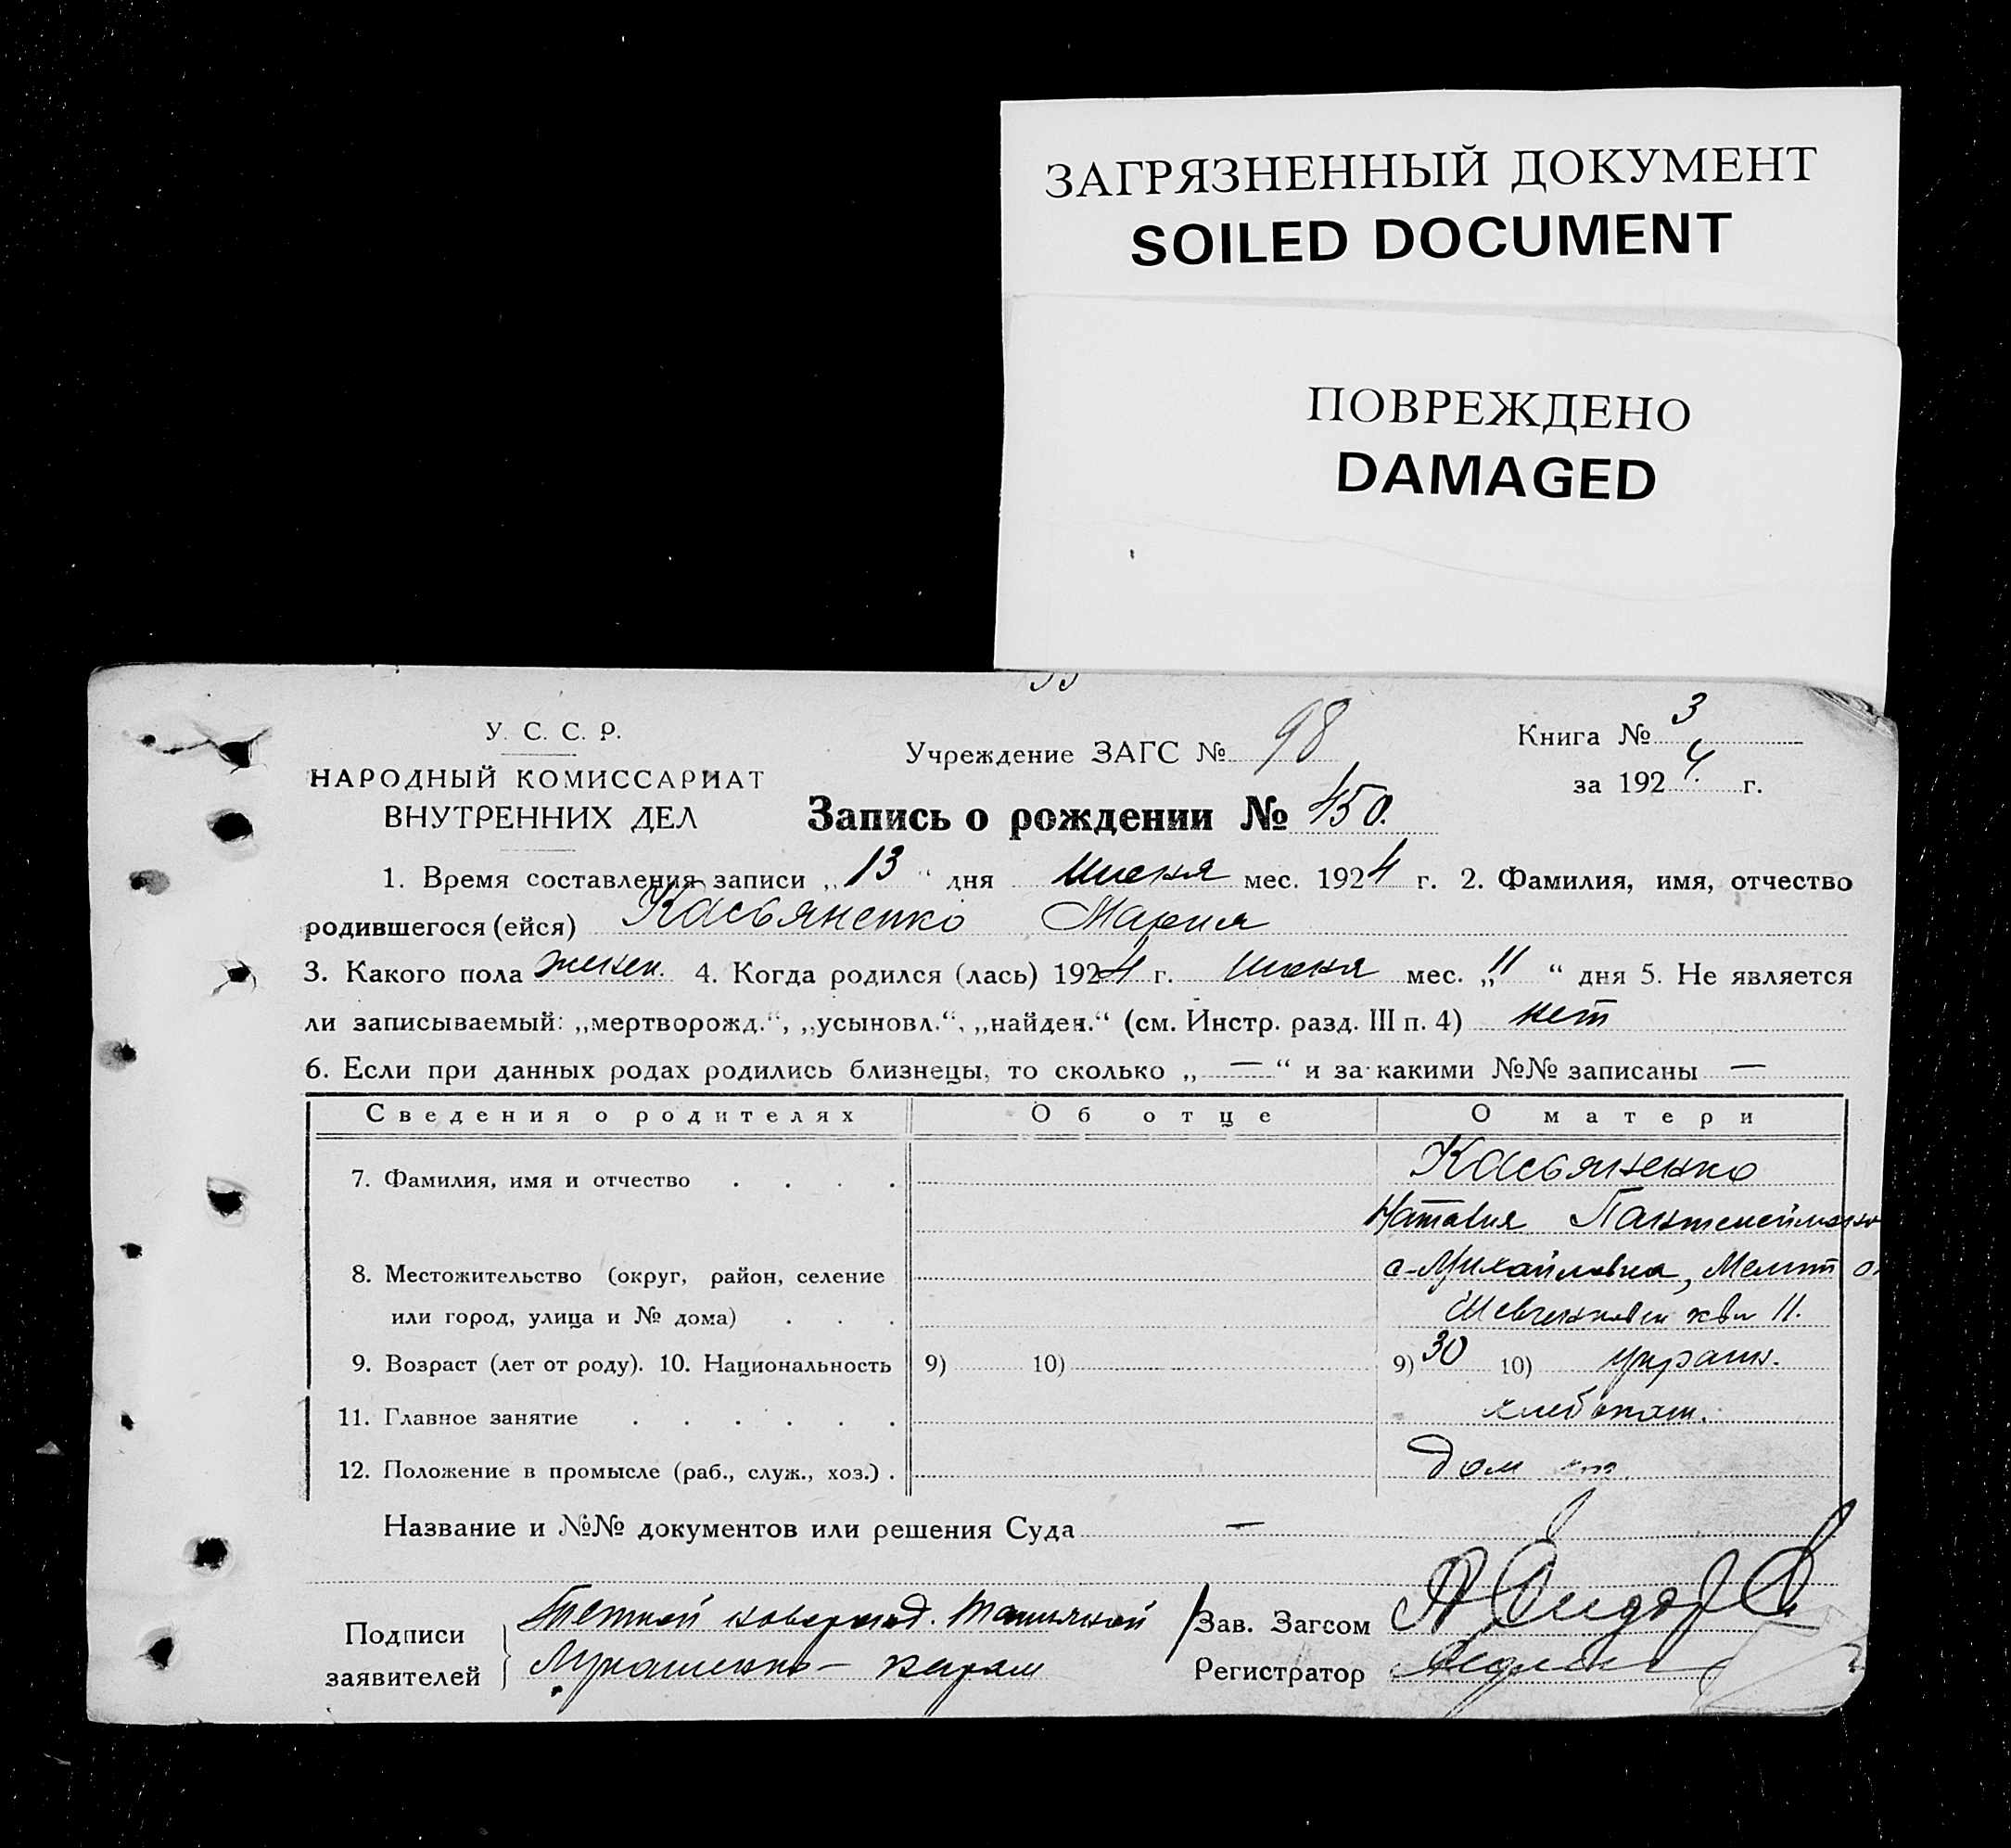 ЗАГРЯЗНЕННЫЙ ДОКУМЕНТ
SOILED DOCUMENT
ПОВРЕЖДЕНО
DAMAGED
У. С. С. Р.
НАРОДНЫЙ КОМИССАРИАТ
ВНУТРЕННИХ ДЕЛ
Учреждение ЗАГС № 98
Книга № 3
за 1924 г.
Запись о рождении № 450.
1. Время составления записи „13“ дня июня мес. 1924 г. 2. Фамилия, имя, отчество
родившегося (ейся) Касьяненко Мария
3. Какого пола женск. 4. Когда родился (лась) 1924 г. июня мес. „11“ дня 5. Не является
ли записываемый: „мертворожд.“, „усыновл.“, „найден.“ (см. Инстр. разд. III п. 4) нет
6. Если при данных родах родились близнецы, то сколько „—“ и за какими №№ записаны —
Сведения о родителях Об отце О матери
7. Фамилия, имя и отчество . . . . Касьяненко
Наталия
8. Местожительство (округ, район, селение с-Михайловка, Мелит о.
или город, улица и № дома) . . . 11.
9. Возраст (лет от роду). 10. Национальность 9) 10) 9) 30 10) украин.
11. Главное занятие . . . . . . хлебопаш.
12. Положение в промысле (раб., служ., хоз.) . дом
Название и №№ документов или решения Суда —
Подписи
заявителей
Зав. Загсом
Регистратор